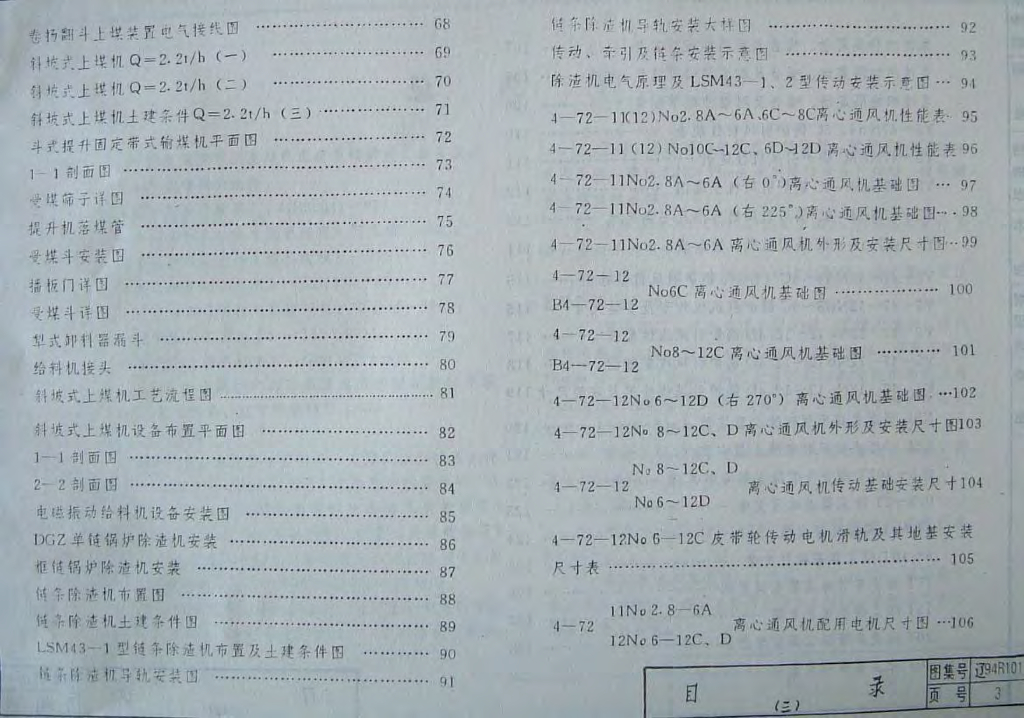 卷扬翻斗上煤装置电气接线图 …………………… 68
斜坡式上煤机Q=2.2t/h（一） …………………… 69
斜坡式上煤机Q=2.2t/h（二） …………………… 70
斜坡式上煤机土建条件Q=2.2t/h（三） ………… 71
斗式提升固定带式输煤机平面图 ………………… 72
1—1剖面图 ………………………………………… 73
受煤筛子详图 ……………………………………… 74
提升机落煤管 ……………………………………… 75
受煤斗安装图 ……………………………………… 76
插板门详图 ………………………………………… 77
受煤斗详图 ………………………………………… 78
犁式卸料器漏斗 …………………………………… 79
给料机接头 ………………………………………… 80
斜坡式上煤机工艺流程图 ………………………… 81
斜坡式上煤机设备布置平面图 …………………… 82
1—1剖面图 ………………………………………… 83
2—2剖面图 ………………………………………… 84
电磁振动给料机设备安装图 ……………………… 85
DGZ单链锅炉除渣机安装 ………………………… 86
框链锅炉除渣机安装 ……………………………… 87
链条除渣机布置图 ………………………………… 88
链条除渣机土建条件图 …………………………… 89
LSM43—1型链条除渣机布置及土建条件图 ……… 90
链条除渣机导轨安装图 …………………………… 91
链条除渣机导轨安装大样图 ……………………… 92
传动、牵引及链条安装示意图 …………………… 93
除渣机电气原理及LSM43—1、2型传动安装示意图 … 94
4—72—11(12)No2.8A～6A、6C～8C离心通风机性能表· 95
4—72—11(12)No10C～12C、6D～12D离心通风机性能表 96
4—72—11No2.8A～6A（右0°）离心通风机基础图 … 97
4—72—11No2.8A～6A（右225°）离心通风机基础图… 98
4—72—11No2.8A～6A离心通风机外形及安装尺寸图··99
4—72—12
No6C离心通风机基础图 ……………… 100
B4—72—12
4—72—12
No8～12C离心通风机基础图 ………… 101
B4—72—12
4—72—12No6～12D（右270°）离心通风机基础图 …102
4—72—12No 8～12C、D离心通风机外形及安装尺寸图103
No 8～12C、D
4—72—12 离心通风机传动基础安装尺寸104
No6～12D
4—72—12No 6—12C皮带轮传动电机滑轨及其地基安装
尺寸表 ……………………………………………… 105
11No 2.8—6A
4—72 离心通风机配用电机尺寸图 …106
12No 6—12C、D
目 录
（三）
图集号 辽94R101
页 号 3